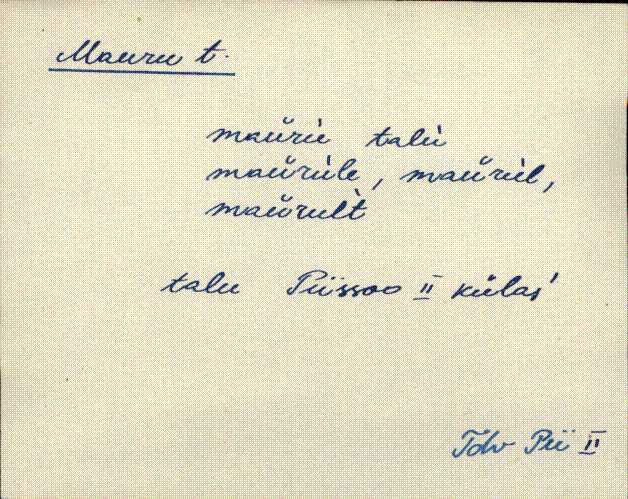 Mauru t.
maŭrù talù
maŭrùle, maŭrùl,
maŭrult
talu Piissoo II külaś
Tdv Pii II